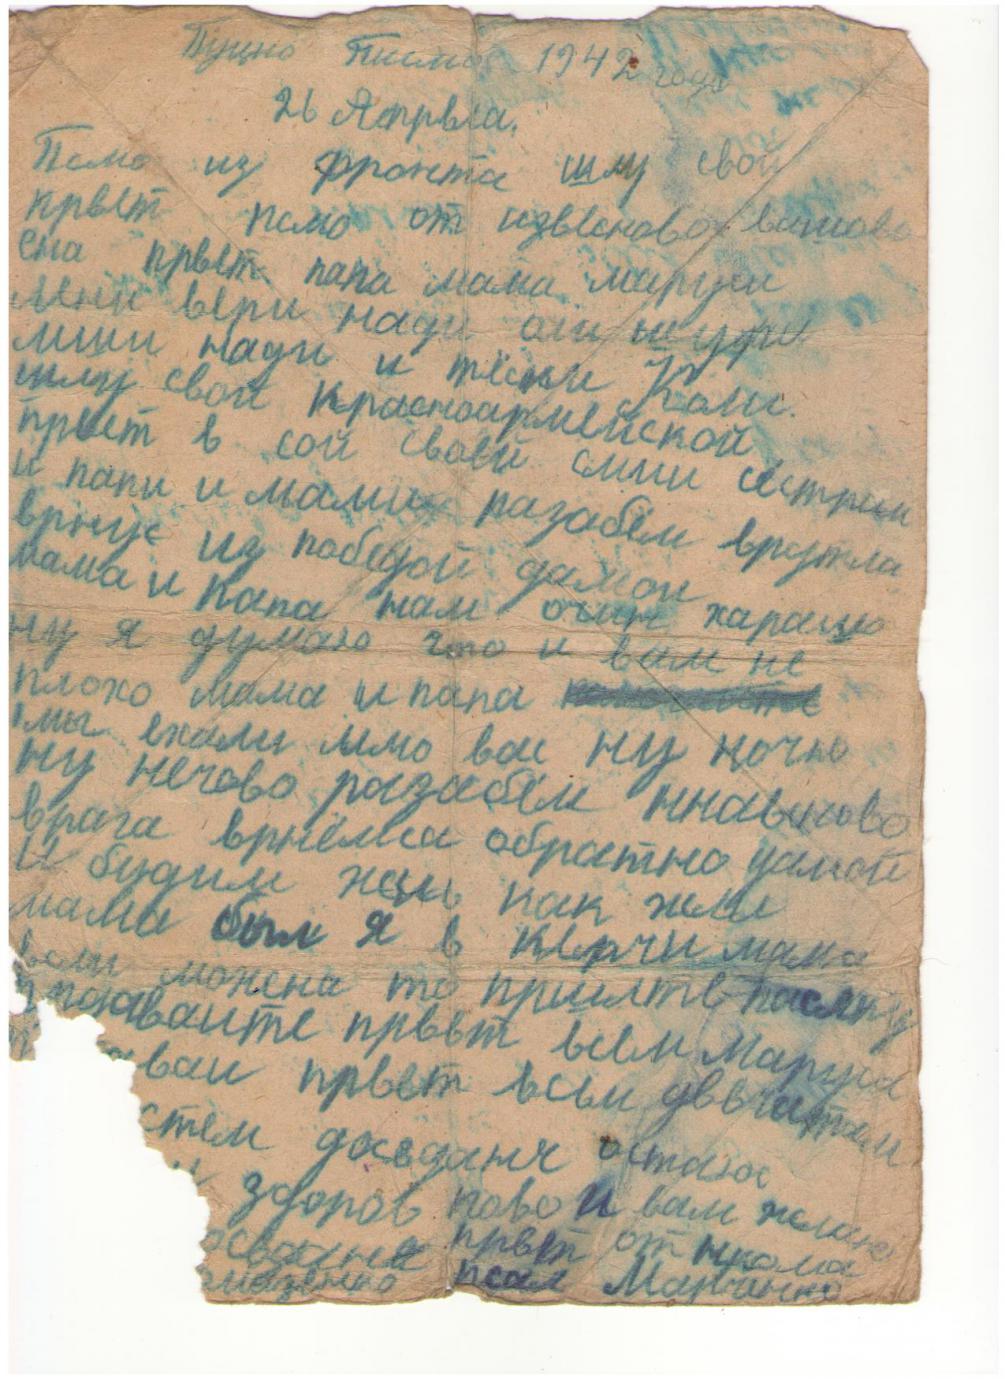 Пущно Писмо 1942 года
26 Апрвла.
Псмо из фронта шлу свой
првет псмо от извесново вашово
сна првет папа мама маруси
лени вери нади оли шури
миши нади и тёски Коли.
шлу свой Красноармейской
првет в сой своей сими сестрии
и папи и мами разабём врагла
врнус из победой дамой
мама и Папа нам очин харашо
ну я думаю что и вам не
плохо мама и папа
мы ехали ммо вас ну ночю
ну нечово разабём ннависново
врага врнёмса обратно дамой
и будим жит как жли
мама был я в Керчи мама
если можна то пришлте пасилку
првет всем Маруся
вай првет всем двечатам
стем досвданя остаюс
здоров ново и вам желаю
првет от нкола
псал Марченко